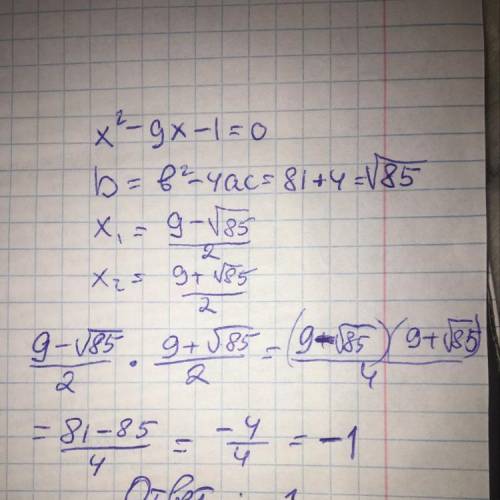 x² - 9x - 1 = 0
D = в² - 4ac = 81 + 4 = √85
x₁ = (9 - √85)/2
x₂ = (9 + √85)/2
(9 - √85)/2 · (9 + √85)/2 = (9 - √85)(9 + √85)/4
= (81 - 85)/4 = -4/4 = -1
Ответ: